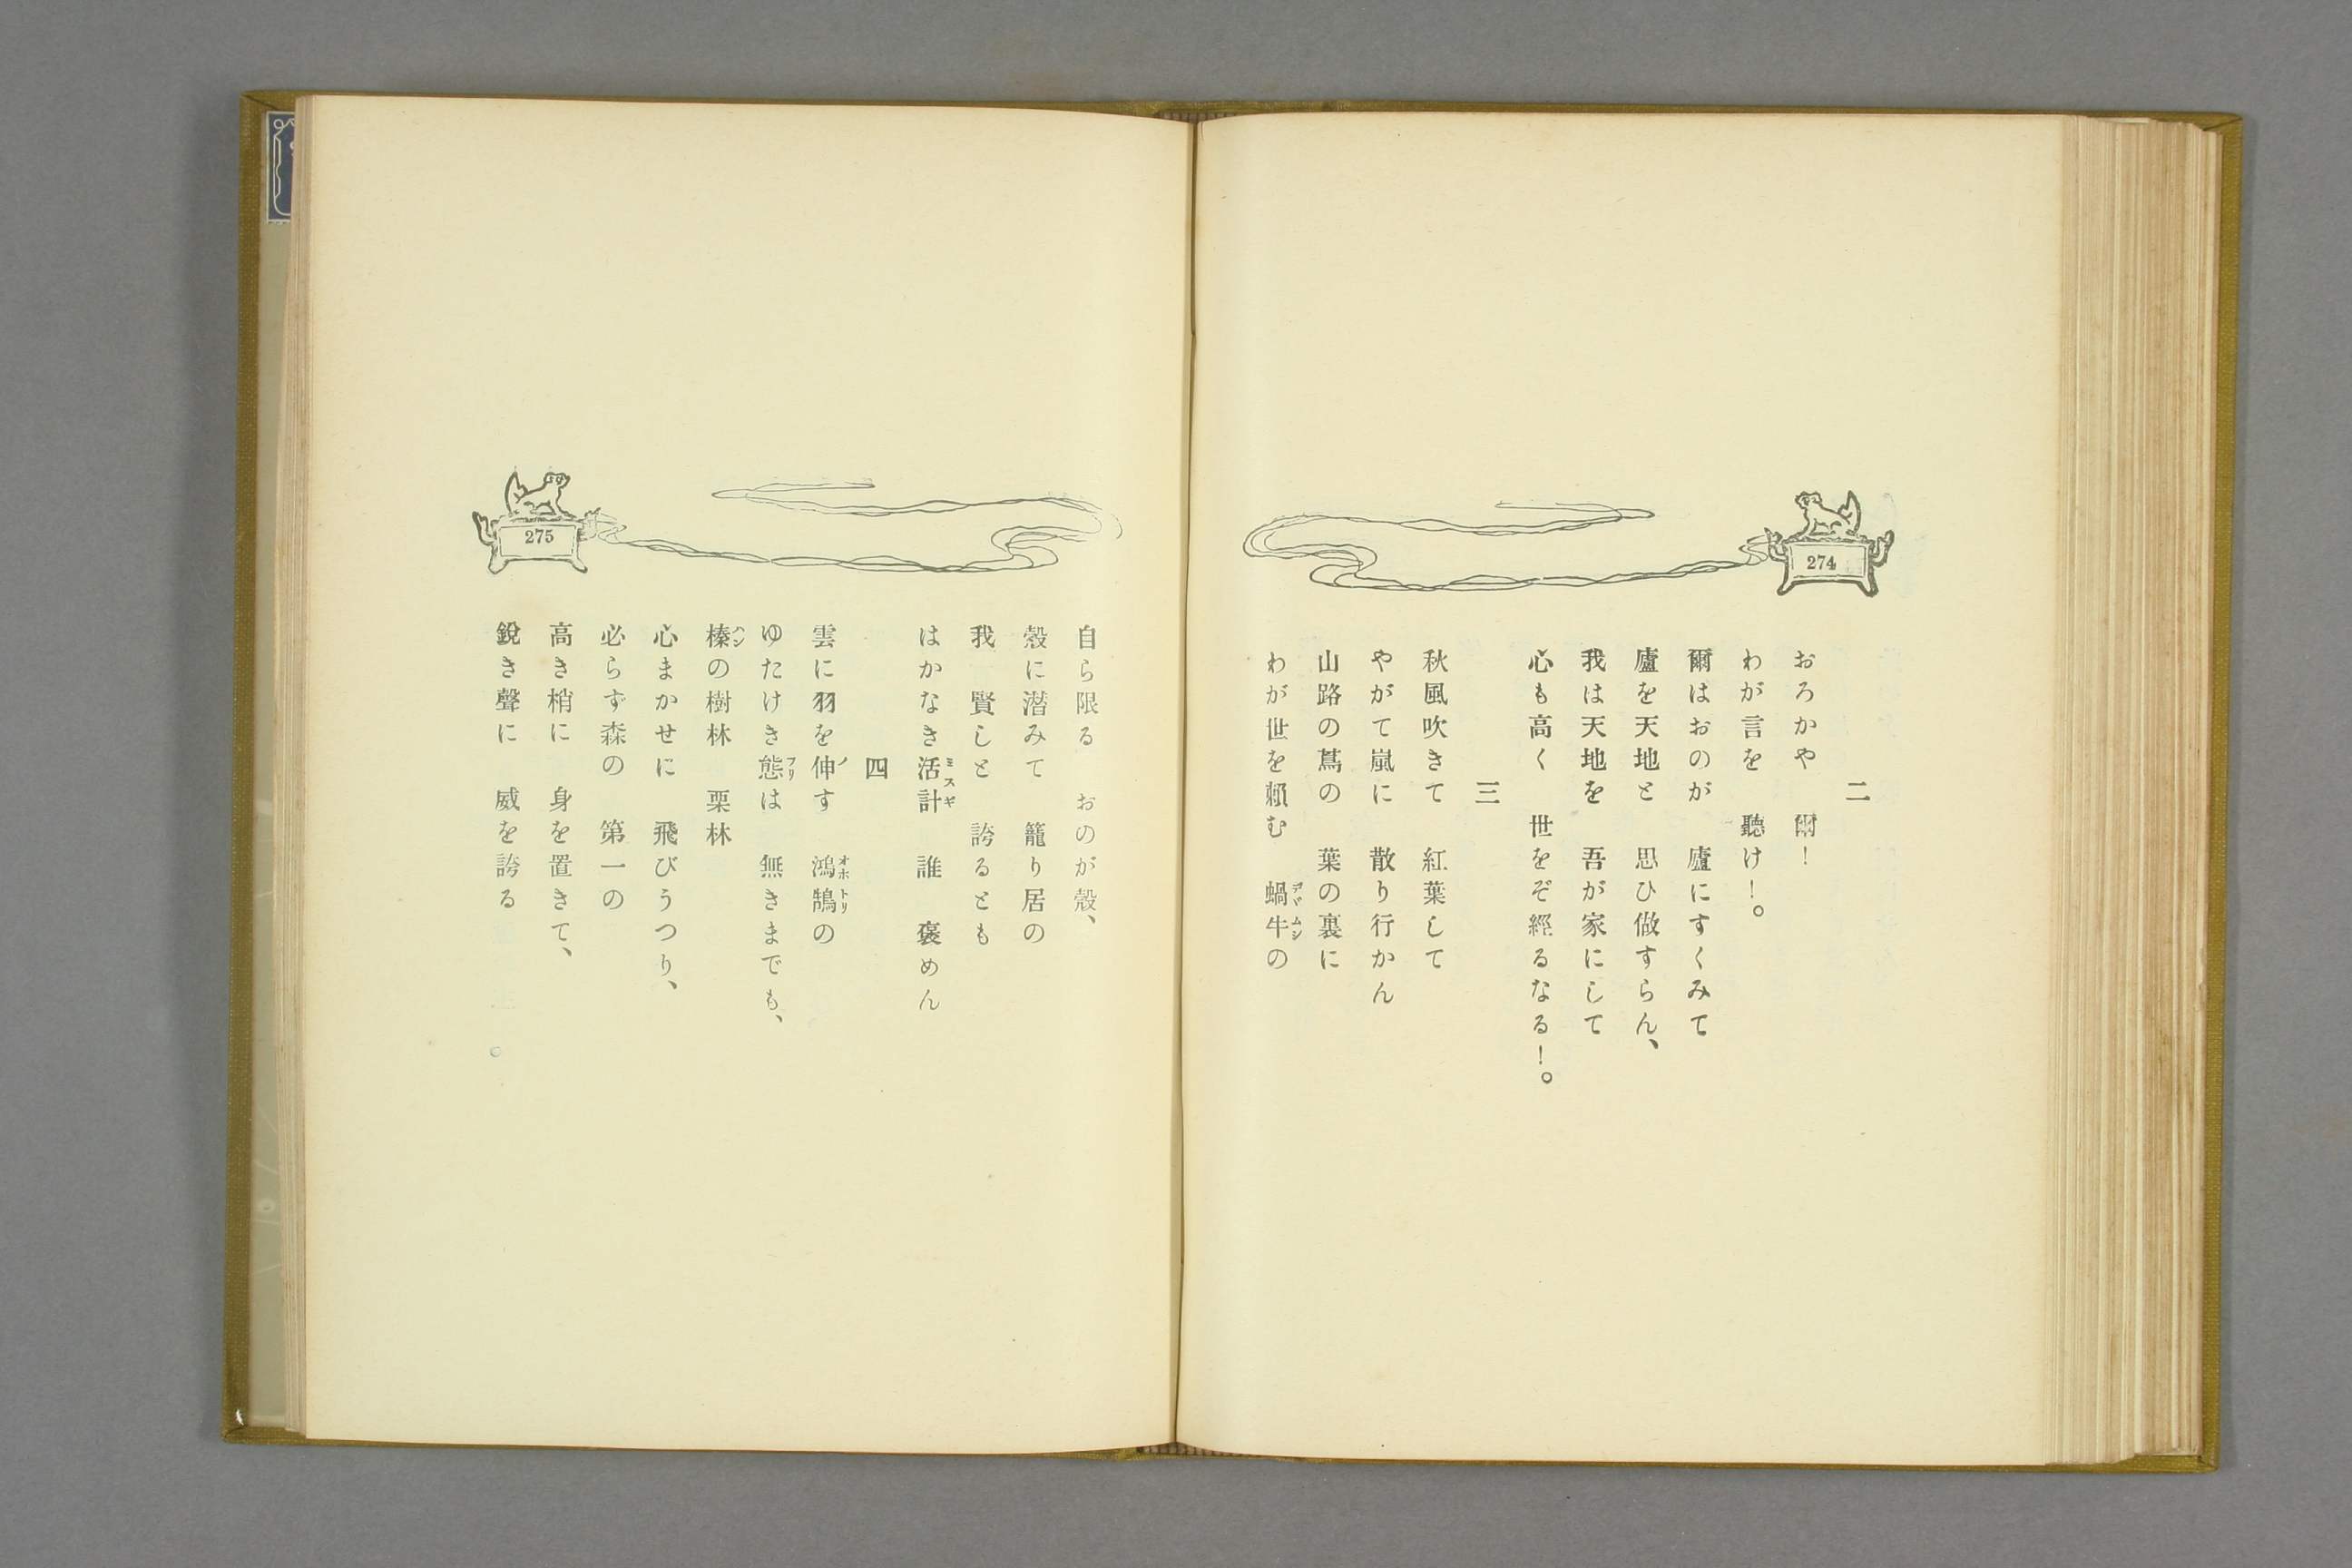 274
二
おろかや　爾！
わが言を　聽け！。
爾はおのが　廬にすくみて
廬を天地と　思ひ做すらん、
我は天地を　吾が家にして
心も高く　世をぞ經るなる！。
三
秋風吹きて　紅葉して
やがて嵐に　散り行かん
山路の蔦の　葉の裏に
わが世を賴む　蝸牛の
275
自ら限る　おのが殼、
殼に潛みて　籠り居の
我　賢しと　誇るとも
はかなき活計　誰　褒めん
四
雲に羽を伸す　鴻鵠の
ゆたけき態は　無きまでも、
榛の樹林　栗林
心まかせに　飛びうつり、
必らず森の　第一の
高き梢に　身を置きて、
銳き聲に　威を誇る